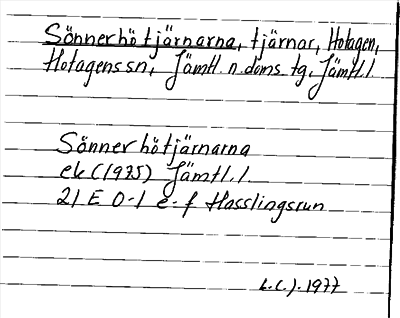 Sönnerhötjärnarna, tjärnar, Hotagen,
Hotagens sn, Jämtl. n. doms. tg, Jämtl. l.
Sönnerhötjärnarna
ek (1975) Jämtl. l.
21 E 0-1 e-f Hasslingsrun
L.C.J. 1977